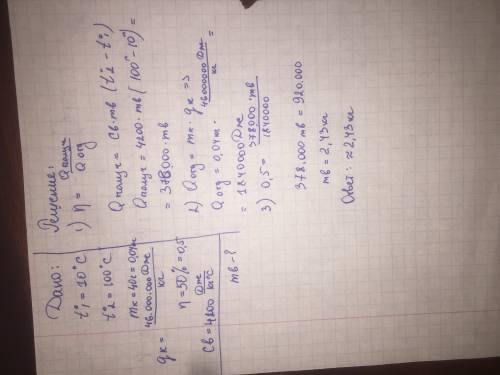 Дано:
t°₁ = 10°C
t°₂ = 100°C
mк = 40г = 0,04кг
qк = 46.000.000 Дж/кг
η = 50% = 0,5
Cв = 4200 Дж/кг°C
mв - ?
Решение:
1) η = Qполуч / Qотд
Qполуч = Cв · mв (t°₂ - t°₁)
Qполуч = 4200 · mв (100° - 10°) =
= 378000 · mв
2) Qотд = mк · qк =>
Qотд = 0,04кг · 46000000 Дж/кг =
= 1840000 Дж
3) 0,5 = 378000 · mв / 1840000
378.000 mв = 920.000
mв = 2,43 кг
Ответ: ≈ 2,43 кг